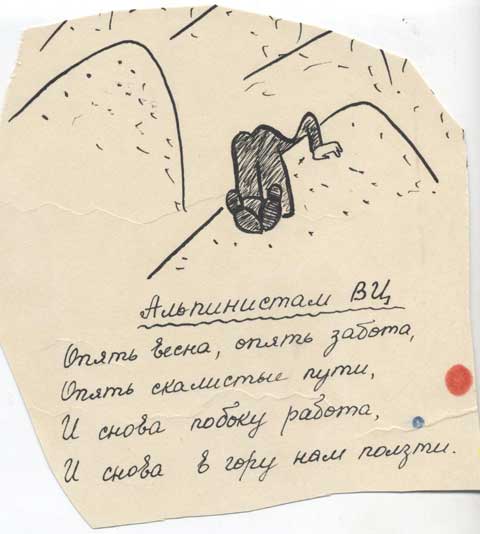 Альпинистам ВЦ
Опять весна, опять забота,
Опять скалистые пути,
И снова побоку работа,
И снова в гору нам ползти.